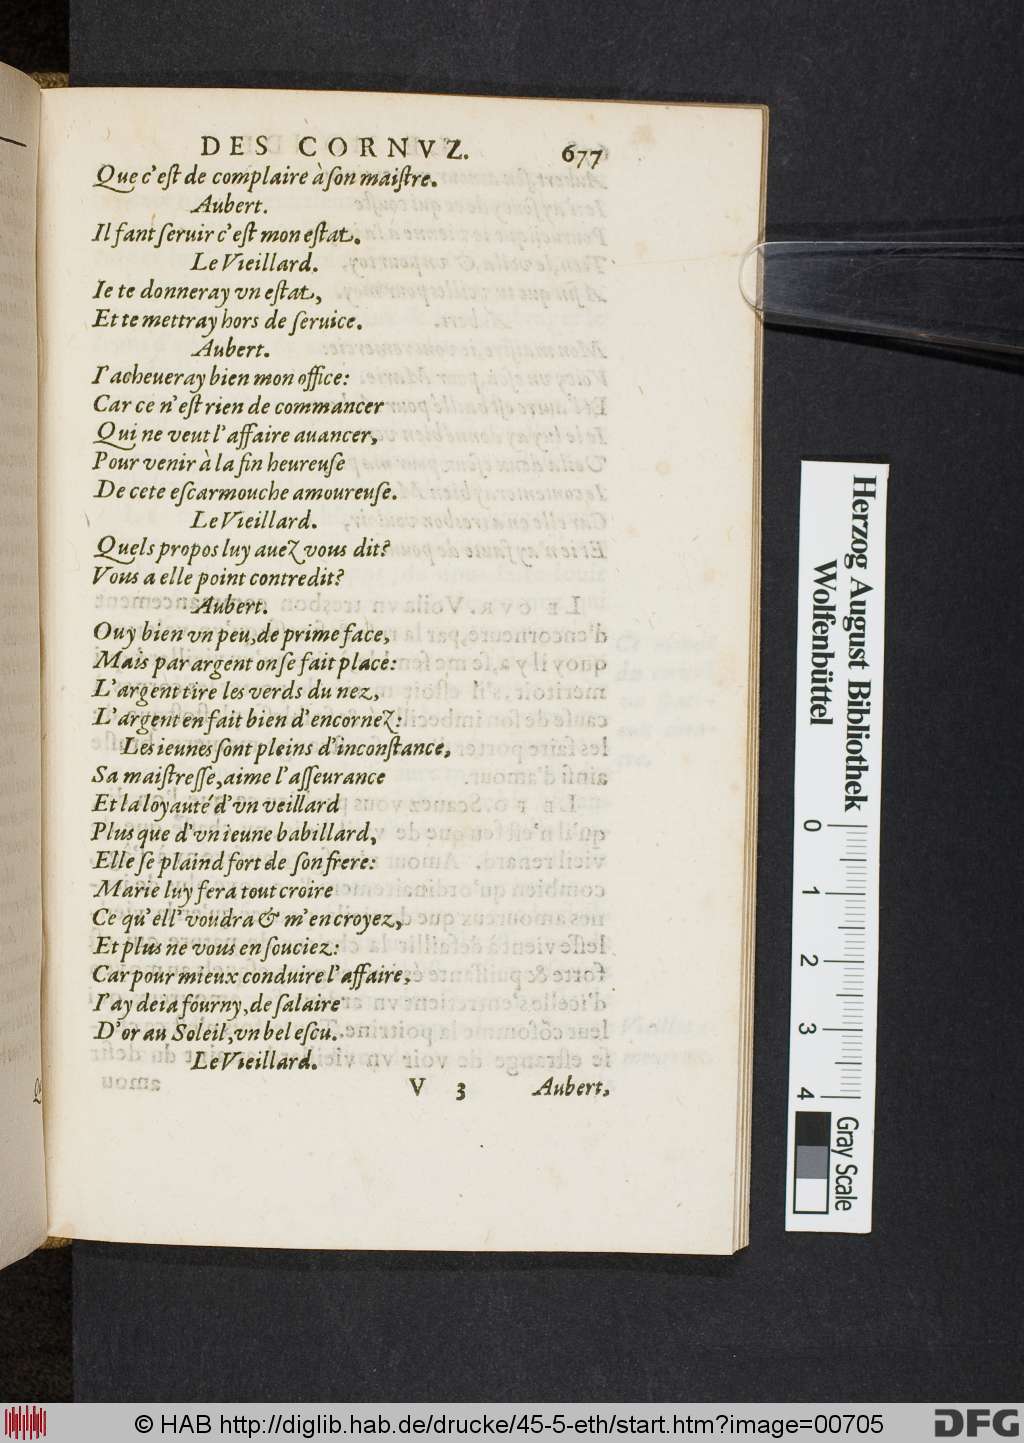 DES CORNVZ. 677
Que c'eſt de complaire à ſon maiſtre.
Aubert.
Il fant ſeruir c'eſt mon eſtat.
Le Vieillard.
Ie te donneray vn eſtat,
Et te mettray hors de ſeruice.
Aubert.
I'acheueray bien mon office:
Car ce n'eſt rien de commancer
Qui ne veut l'affaire auancer,
Pour venir à la fin heureuſe
De cete eſcarmouche amoureuſe.
Le Vieillard.
Quels propos luy auez vous dit?
Vous a elle point contredit?
Aubert.
Ouy bien vn peu, de prime face,
Mais par argent on ſe fait place:
L'argent tire les verds du nez,
L'argent en fait bien d'encornez:
Les ieunes ſont pleins d'inconſtance,
Sa maiſtreſſe, aime l'aſſeurance
Et la loyauté d'vn veillard
Plus que d'vn ieune babillard,
Elle ſe plaind fort de ſon frere:
Marie luy fera tout croire
Ce qu'ell' voudra & m'en croyez,
Et plus ne vous en ſouciez:
Car pour mieux conduire l'affaire,
I'ay deia fourny, de ſalaire
D'or au Soleil, vn bel eſcu.
Le Vieillard.
V 3 Aubert,
Herzog August Bibliothek
Wolfenbüttel
0 1 2 3 4
Gray Scale
© HAB http://diglib.hab.de/drucke/45-5-eth/start.htm?image=00705
DFG